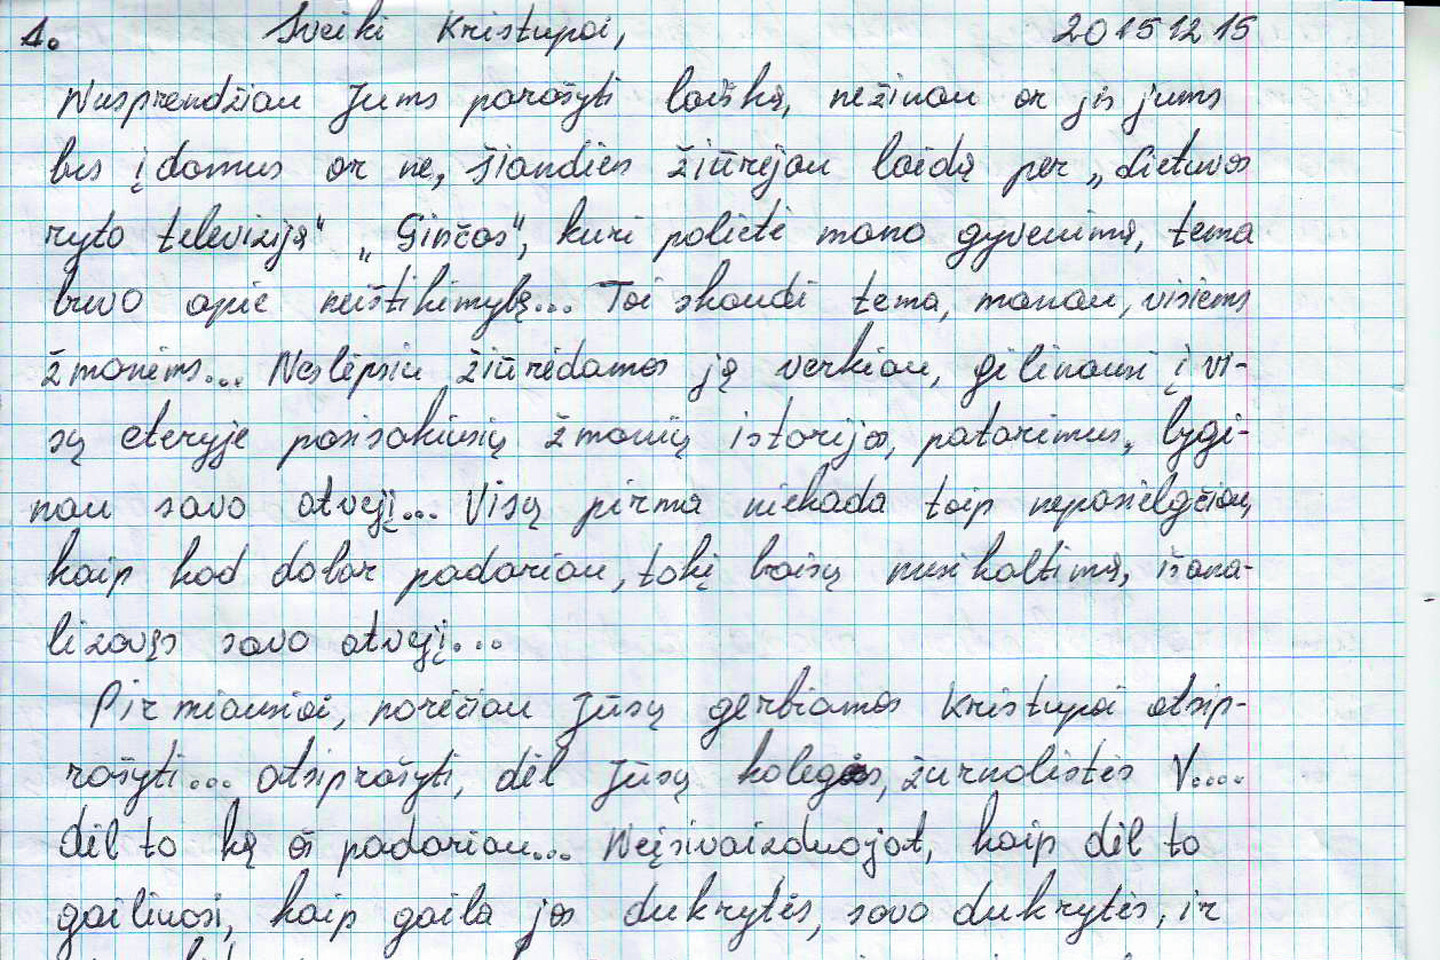 1. Sveiki Kristupai, 2015 12 15
Nusprendžiau Jums parašyti laišką, nežinau ar jis jums
bus įdomus ar ne, šiandien žiūrėjau laidą per „Lietuvos
ryto televiziją“ „Ginčas“, kuri palietė mano gyvenimą, tema
buvo apie neištikimybę... Tai skaudi tema, manau, visiems
žmonėms... Neslėpsiu žiūrėdamas ją verkiau, gilinausi į vi-
sų eteryje pasisakiusių žmonių istorijas, patarimus, lygi-
nau savo atvejį... Visų pirma niekada taip nepasielgčiau,
kaip kad dabar padariau, tokį baisų nusikaltimą, išana-
lizavęs savo atvejį...
Pirmiausiai, norėčiau Jūsų gerbiamas Kristupai atsip-
rašyti... atsiprašyti, dėl Jūsų kolegės, žurnalistės V....
dėl to ką aš padariau... Neįsivaizduojat, kaip dėl to
gailiuosi, kaip gaila jos dukrytės, savo dukrytės, ir